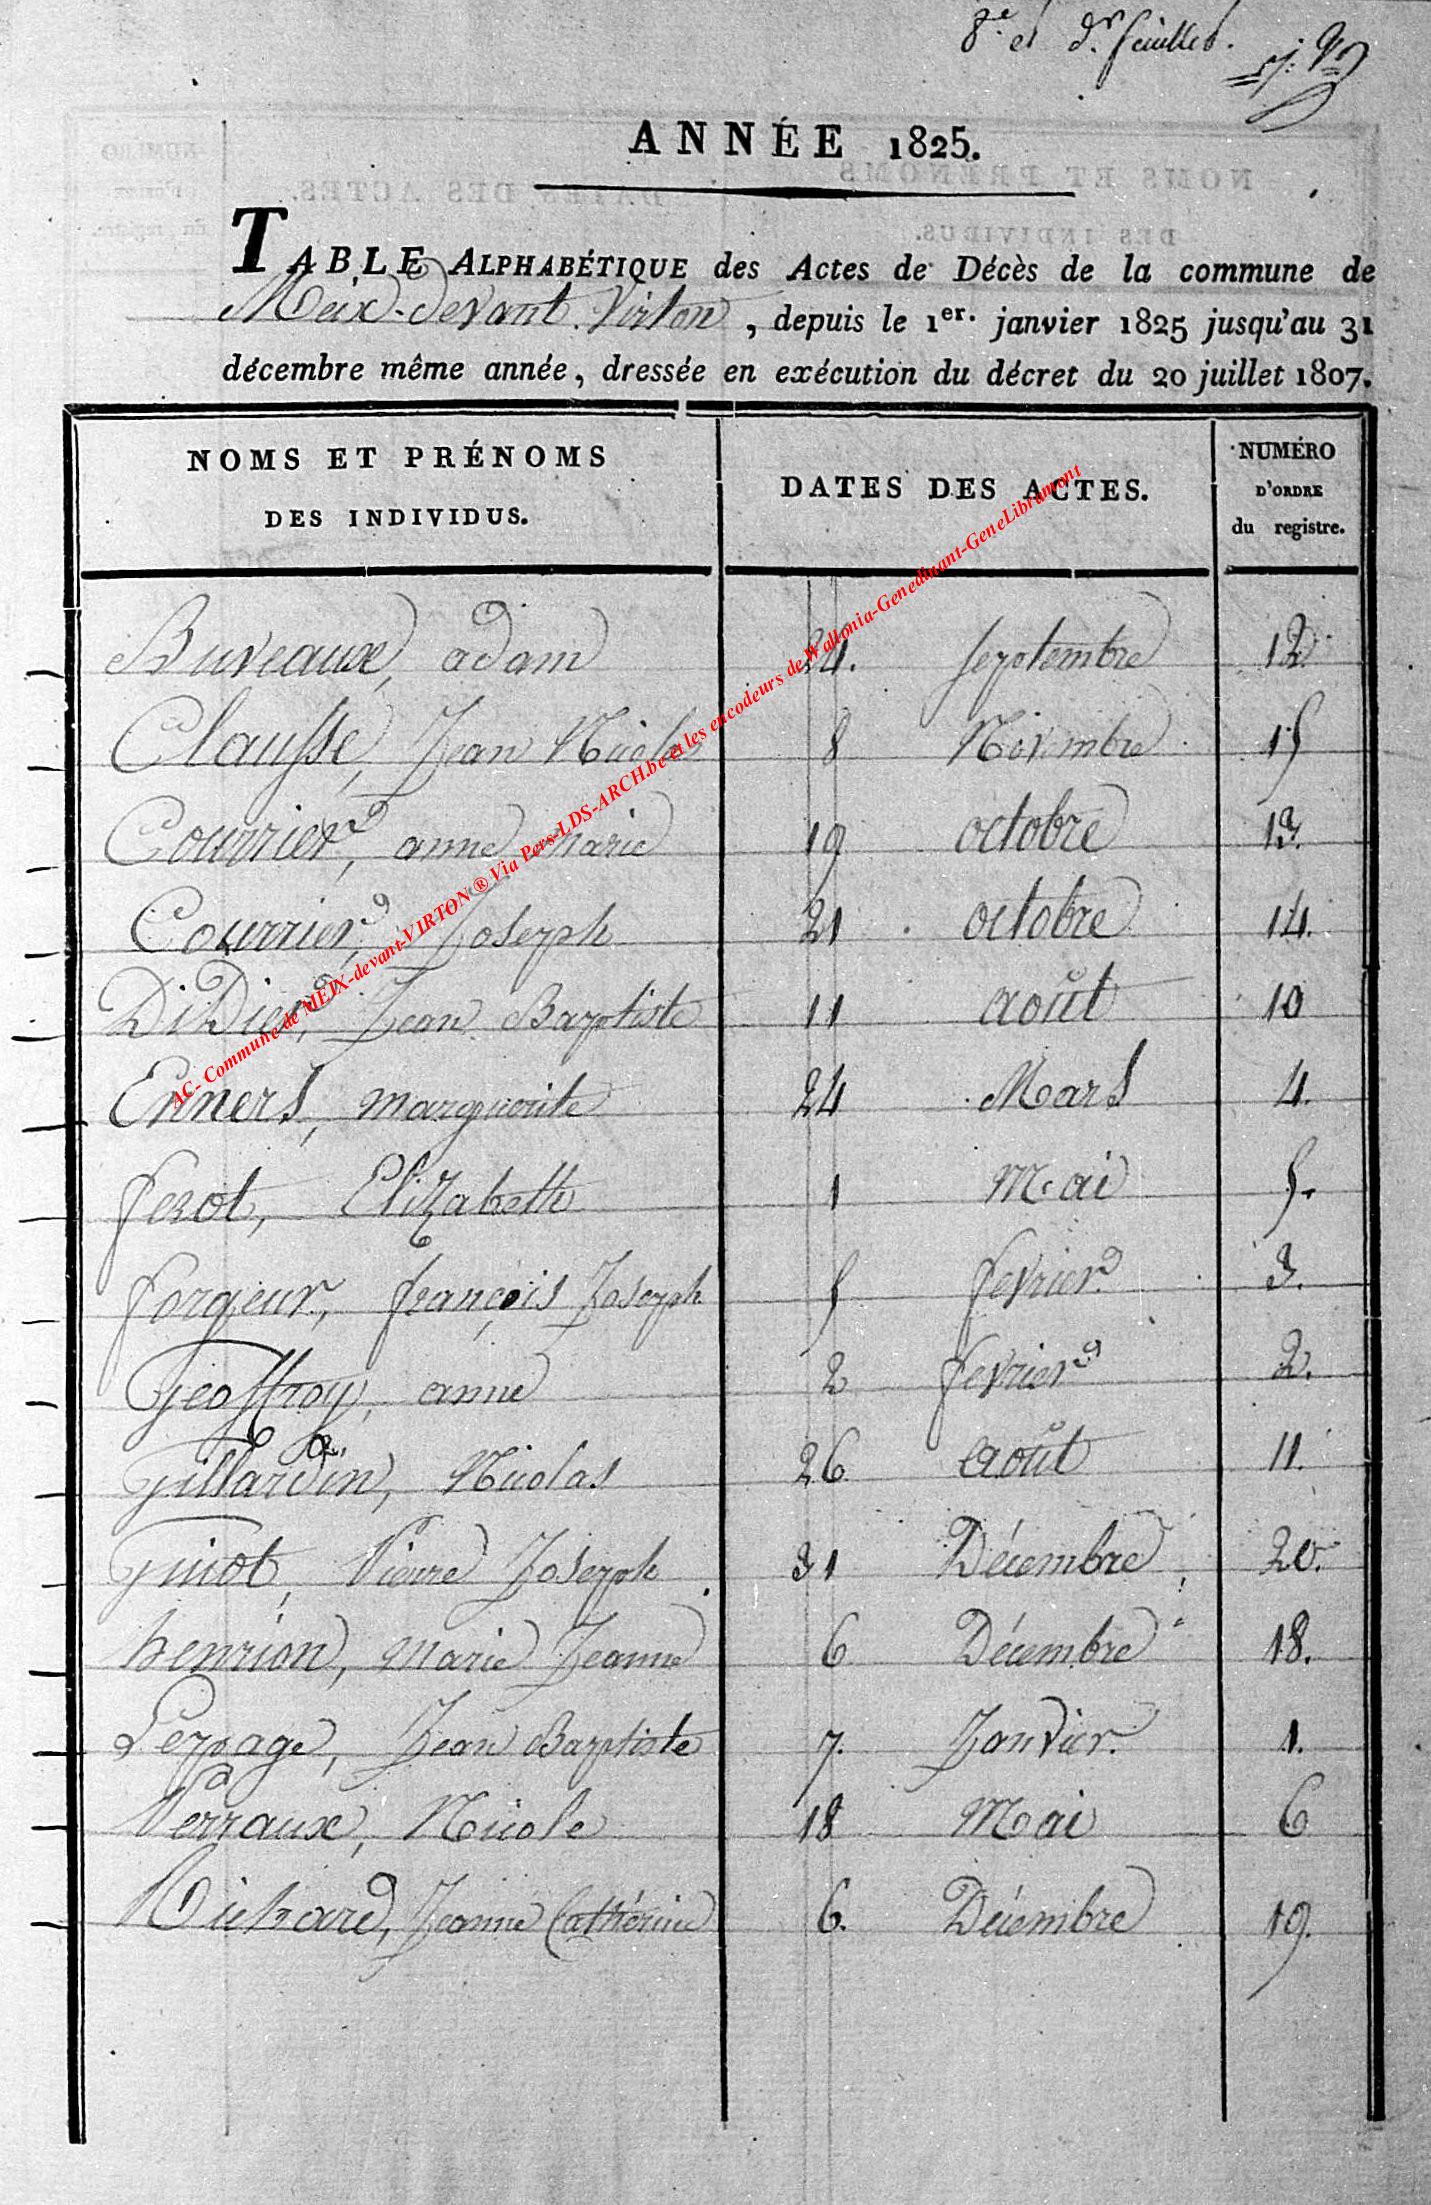 8.e et d.r feuillet.
ANNÉE 1825.
TABLE ALPHABÉTIQUE des Actes de Décès de la commune de
Meix-devant-Virton, depuis le 1er. janvier 1825 jusqu'au 31
décembre même année, dressée en exécution du décret du 20 juillet 1807.
NOMS ET PRÉNOMS DES INDIVIDUS. DATES DES ACTES. NUMÉRO D'ORDRE du registre.
Buveaux, adam 24. septembre 12.
Clausse, Jean Nicolas 8 Novembre 15
Courrier, anne marie 19 octobre 13.
Courrier, Joseph 21 octobre 14.
Didier, Jean Baptiste 11 août 10
Enners, marguerite 24 Mars 4.
ferot, Elizabeth 1 Mai 5.
forgeur, françois Joseph 5 fevrier 3.
Geoffroy, anne 2 fevrier 2.
Gillardin, Nicolas 26 août 11.
Guiot, Pierre Joseph 31 Décembre 20.
henrion, marie Jeanne 6 Décembre 18.
Lepage, Jean Baptiste 7. Janvier. 1.
Perraux, Nicole 18 Mai 6
Richard, Jeanne Cathérine 6. Décembre 19.
AC- Commune de MEIX-devant-VIRTON ® Via Pers-LDS-ARCH.be et les encodeurs de Wallonia-Genedinant-GeneLibramont